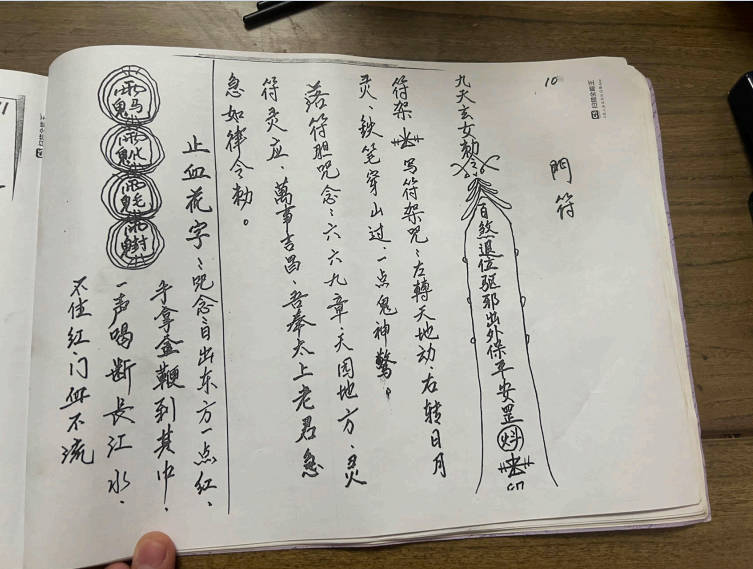 10
門符
九天玄女勅令
百煞退位驱邪出外保平安罡
符架 写符架咒:左轉天地动、右转日月
灵、鉄笔穿山过、一点鬼神驚。
落符胆咒念:六六九章、天圆地方、灵
符灵应、萬事吉昌、吾奉太上老君急
急如律令勅。
止血花字:咒念:日出东方一点红、
手拿金鞭到其中、
一声喝断長江水、
不住红门血不流